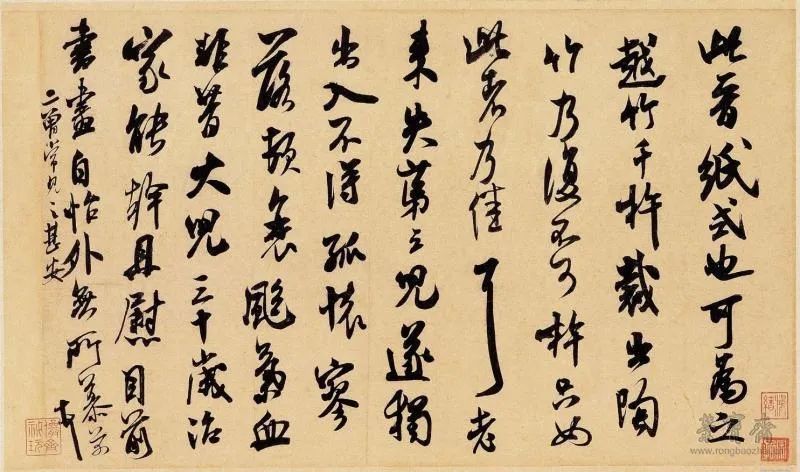 此晉紙式也可為之
越竹千杵裁出陶
竹乃復不可杵只如
此者乃佳耳老
来失第三兒遂獨
出入不得孤懷寥
落頓衰颯氣血
非昔大兒三十歲治
家能幹且慰目前
書畫自怡外無所慕芾
二曾常見之甚安
榮寶齋
www.rongbaozhai.cn